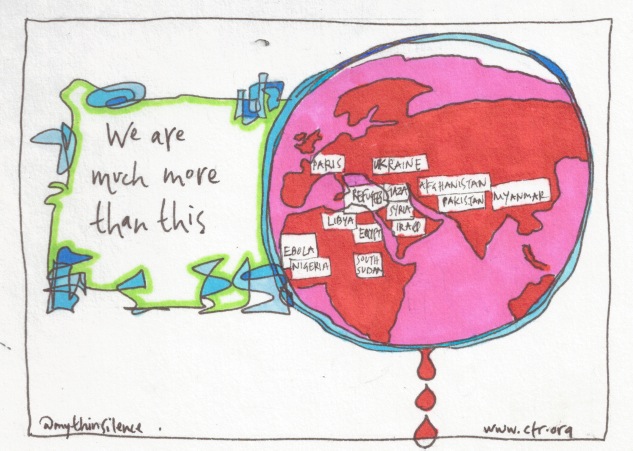 We are
much more
than this
PARIS
UKRAINE
REFUGEES
GAZA
AFGHANISTAN
PAKISTAN
MYANMAR
SYRIA
LIBYA
EGYPT
IRAQ
EBOLA
NIGERIA
SOUTH
SUDAN
@mythinsilence.
www.cfr.org